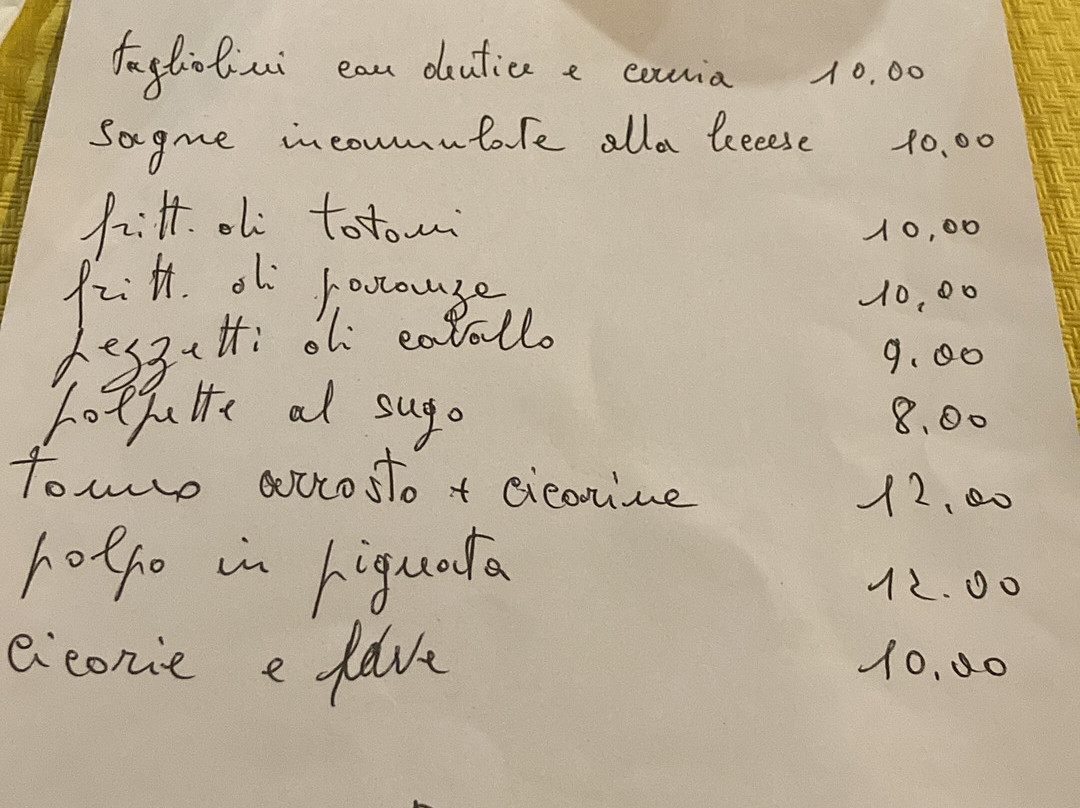 tagliolini con dentice e cernia 10.00
sagne incannulate alla leccese 10,00
fritt. di totani 10,00
fritt. di paranza 10,00
pezzetti di cavallo 9.00
polpette al sugo 8.00
tonno arrosto + cicorine 12.00
polpo in pignata 12.00
cicorie e fave 10.00